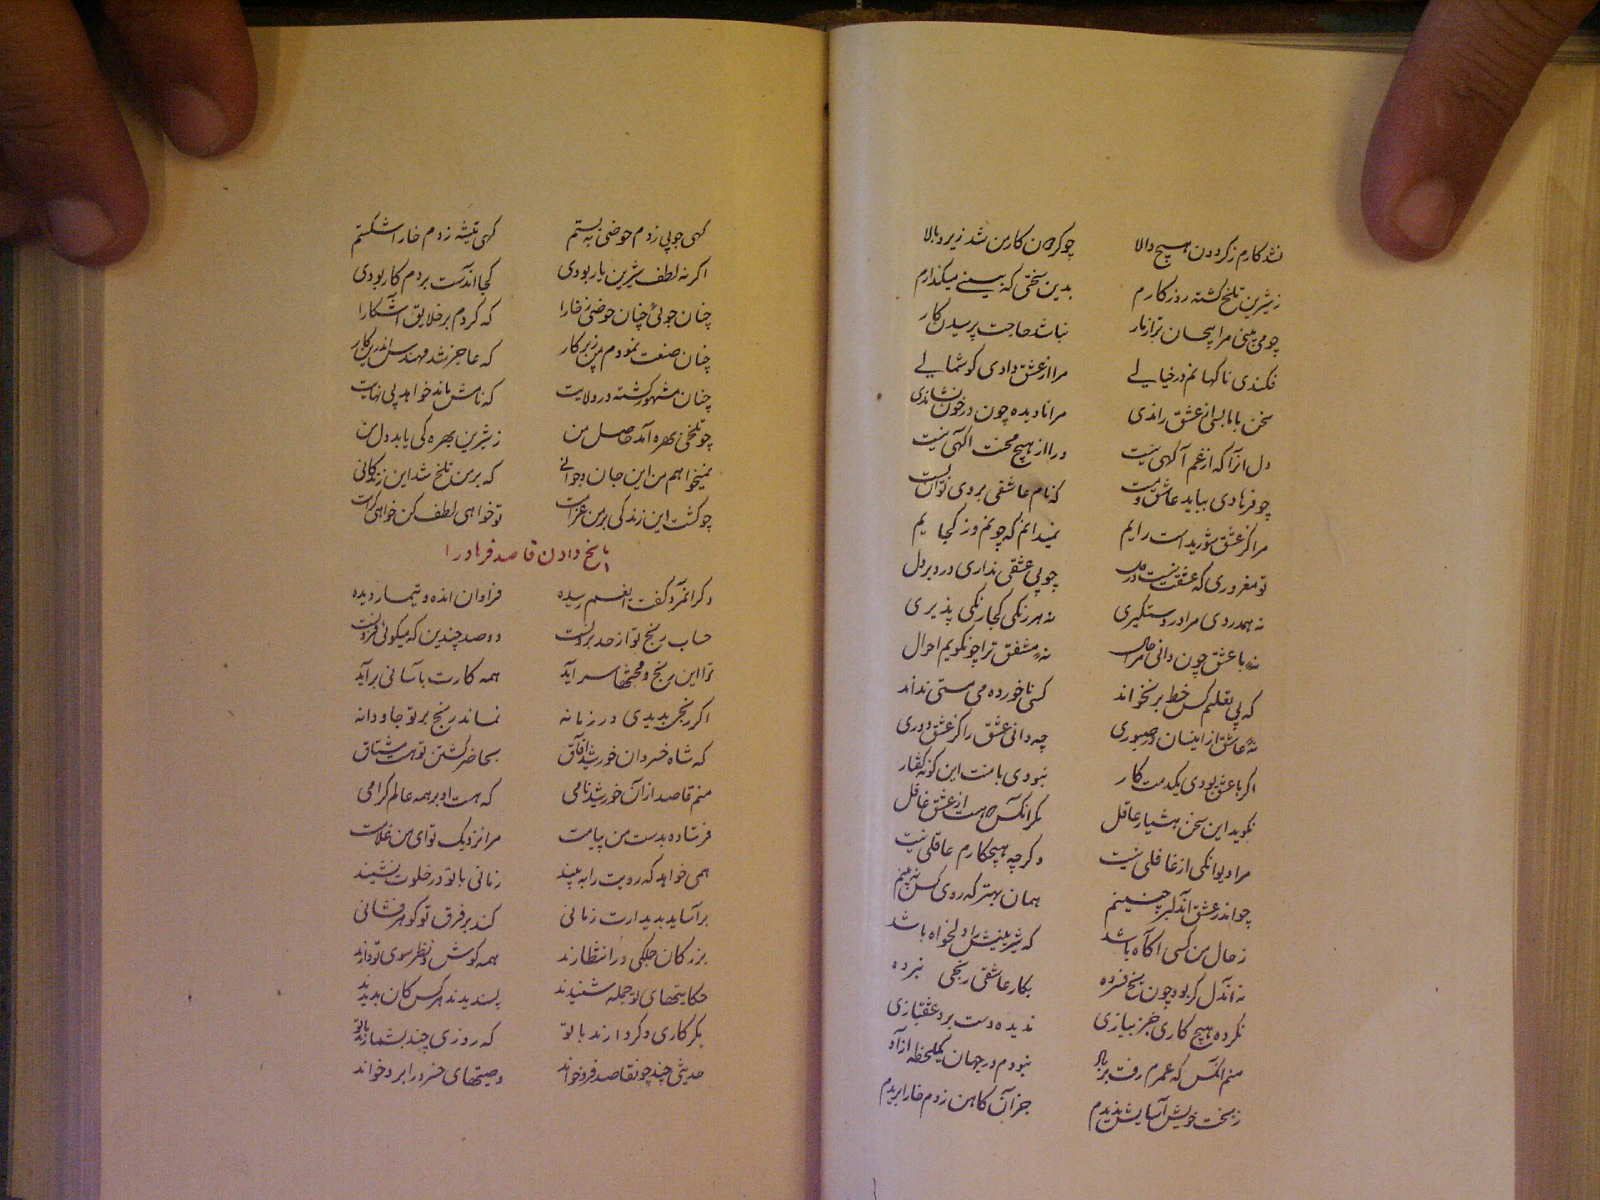 نشد کارم ز کردون هیچ والا چو کردون کار من شد زیر و بالا
ز شیرین تلخ کشته روزکارم بدین سختی که بینی میکذارم
چو می بینی مرا پیچان تر از مار نباشد حاجت پرسیدن کار
فکندی ناکهانم در خیالی مرا از عشق دادی کوشمالی
سخن با ما بسی از عشق راندی مرا نادیده چون در خون نشاندی
دل انرا که از غم آکهی نیست ورا از هیچ محنت آکهی نیست
چو فرهادی بباید عاشق و مست که نام عاشقی بر وی توان بست
مرا کز عشق شوریده است رایم نمیدانم که چونم وز کجایم
تو مغروری که عشقت نیست در دل چو بی عشقی نداری درد بر دل
نه همدردی مرا در دستکیری نه هم رنکی کجا رنکی پذیری
نه با عشق چون دانی مرا حال نه مشفق ترا چون کویم احوال
که بی تعلیم کس خط بر نخواند کسی ناخورده می مستی نداند
نه عاشق از اینسان در صبوری چه دانی عشق را کز عشق دوری
اکر با عشق بودی یکدمت کار نبودی با منت این کونه کفتار
نکوید این سخن هشیار عاقل مکر انکس که هست از عشق غافل
مرا دیوانکی از غافلی نیست و کرچه هیچکارم عاقلی نیست
چو اندر عشق آن دلبر چنینم همان بهتر که روی کس نه بینم
ز حال من کسی اکاه باشد که شیرینیش را دلخواه باشد
نه اندل کو بود چون یخ فسرده بکار عاشقی رنجی نبرده
نکرده هیچ کاری جز ببازی ندیده دست برد عشقبازی
منم انکس که عمرم رفت بر باد نبودم در جهان یکلحظه ازاد
ز بخت خویش آسایش ندیدم جز آن کاهن زدم خارا بریدم
کهی جویی زدم حوضی به بستم کهی تیشه زدم خارا شکستم
اکر نه لطف شیرین یار بودی کجا اندست بردم کار بودی
چنان جوئی چنان حوضی ز خارا که کردم بر خلایق آشکارا
چنان صنعت نمودم من ز پرکار که عاجز شد مهندس اندرین کار
چنان مشهور کشته در ولایت که نامش ماند خواهد بی نهایت
چو تلخی بهره آمد حاصل من ز شیرین بهره کی یابد دل من
نمیخواهم من این جان و جوانی که بر من تلخ شد این زندکانی
چو کشت این زندکی بر من غرامت تو خواهی لطف کن خواهی
پاسخ دادن قاصد فرهاد را
دکر انمرد کفت ای غم رسیده فراوان انده و تیمار دیده
حساب رنج تو از حد برونست دو صد چندین که میکوئی فزونست
ترا این رنج و محنتها سر آید همه کارت باسانی برآید
اکر رنجی بدیدی در زمانه نماند رنج بر تو جاودانه
که شاه خسروان خورشید آفاق بحاضر کشتن تو هست مشتاق
منم قاصد از آن خورشید نامی که هست او بر همه عالم کرامی
فرستاده بدست من پیامت مرا نزدیک تو ای من غلامت
همی خواهد که رویت را به بیند زمانی با تو در خلوت نشیند
برآساید بدیدارت زمانی کند بر فرق تو کوهر فشانی
بزرکان جملکی در انتظارند همه کوش و نظر سوی تو دارند
حکایتهای تو جمله شنیدند پسندیدند هر کس کان بدیدند
مکر کاری دکر دارند با تو که روزی چند
حدیثی چند چون قاصد فرو خواند وصیتهای خسرو را برو خواند